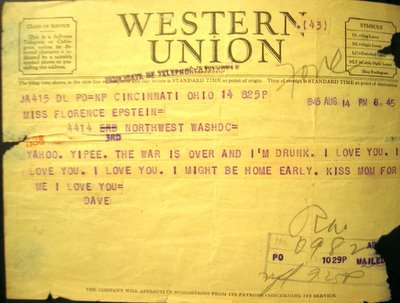 CLASS OF SERVICE
This is a full-rate Telegram or Cablegram unless its deferred character is indicated by a suitable symbol above or preceding the address.
WESTERN
UNION
(43)
SYMBOLS
The filing time shown in the date line
STANDARD TIME at point of origin. Time of receipt is STANDARD TIME
DUPLICATE OF TELEPHONED
JA415 DL PD=NP CINCINNATI OHIO 14 825P
1945 AUG 14 PM 8 45
MISS FLORENCE EPSTEIN=
4414 ERB NORTHWEST WASHDC=
3RD
YAHOO. YIPEE. THE WAR IS OVER AND I'M DRUNK. I LOVE YOU. I
LOVE YOU. I LOVE YOU. I MIGHT BE HOME EARLY. KISS MOM FOR
ME I LOVE YOU=
DAVE
No. 0982
PO 1029P MAILED
925P
THE COMPANY WILL APPRECIATE SUGGESTIONS FROM ITS PATRONS CONCERNING ITS SERVICE